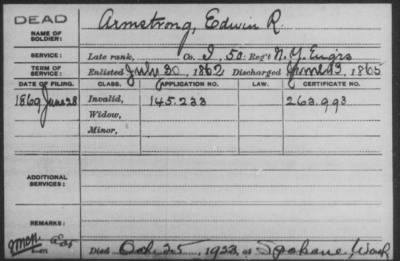 DEAD
NAME OF SOLDIER: Armstrong, Edwin R.
SERVICE: Late rank, Co. I, 50. Reg't N.Y. Eng'rs
TERM OF SERVICE: Enlisted July 30, 1862 Discharged June 13, 1865
DATE OF FILING. CLASS. APPLICATION NO. LAW. CERTIFICATE NO.
1869 June 28 Invalid, 145.233 263.993
Widow,
Minor,
ADDITIONAL SERVICES:
REMARKS:
Died Oct. 25, 1923, at Spokane, Wash